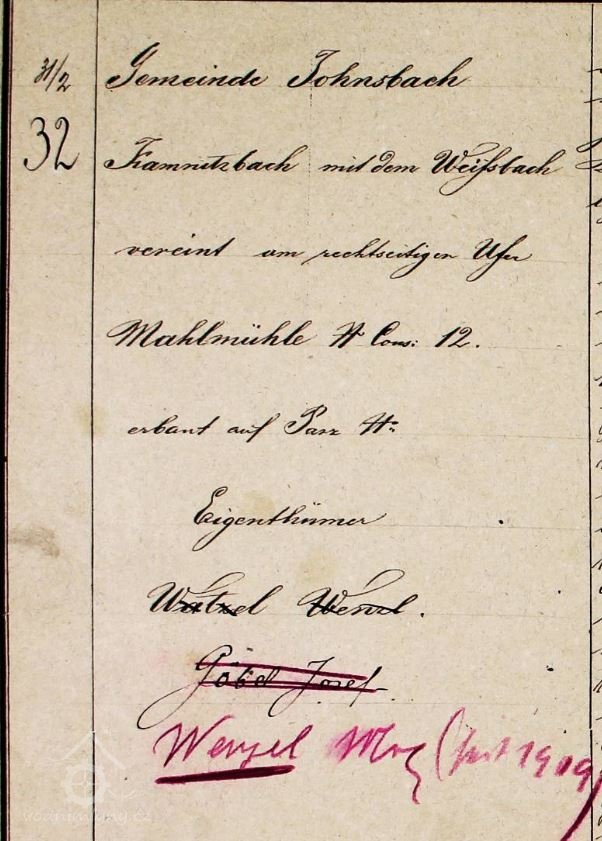 31/2 Gemeinde Johnsbach
32 Kamnitzbach mit dem Weißbach
vereint am rechtseitigen Ufer
Mahlmühle N Cons: 12.
erbaut auf Parz N
Eigenthümer
Watzel Wenzl.
Göbel Josef.
Wenzel (seit 1909)
vodnimlyny.cz